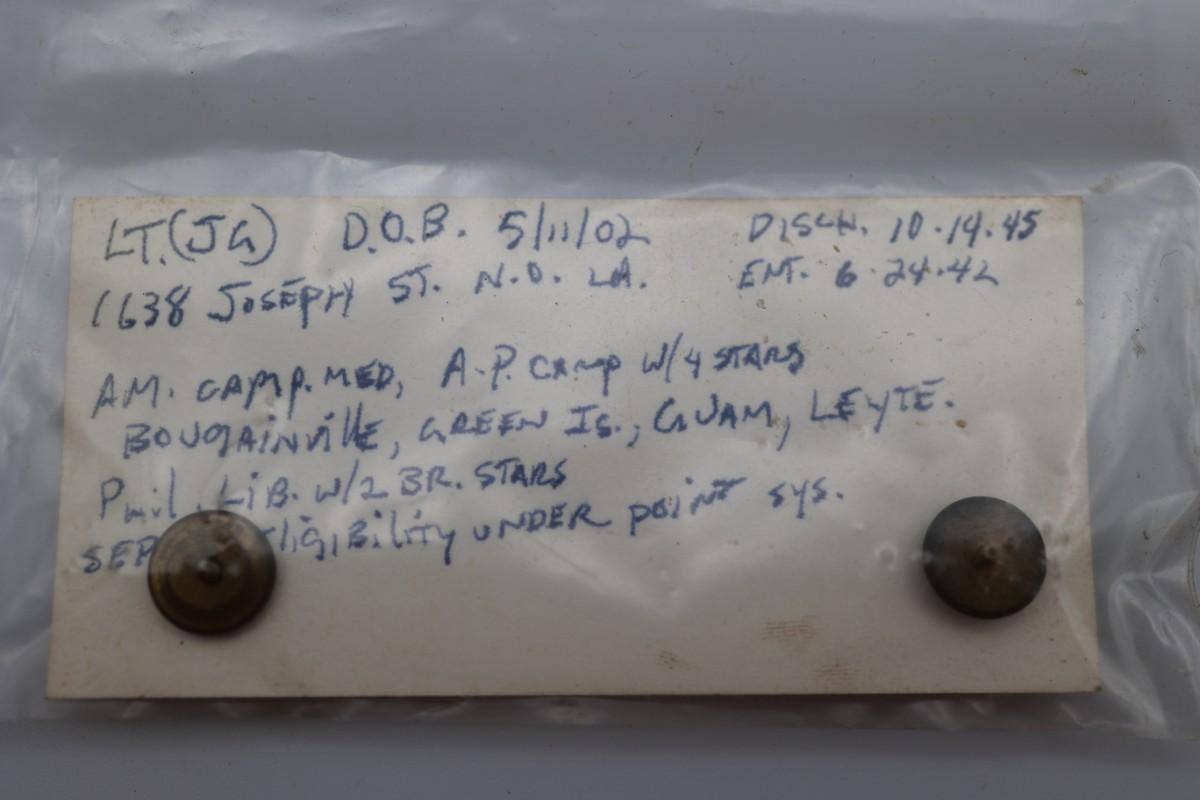 LT.(JG) D.O.B. 5/11/02 DISCH. 10.19.45
1638 JOSEPH ST. N.O. LA. ENT. 6.24.42
AM. CAMP. MED, A.P. CAMP W/4 STARS
BOUGAINVILLE, GREEN IS., GUAM, LEYTE.
Phil. LIB. W/2 BR. STARS
SEP Eligibility UNDER POINT SYS.